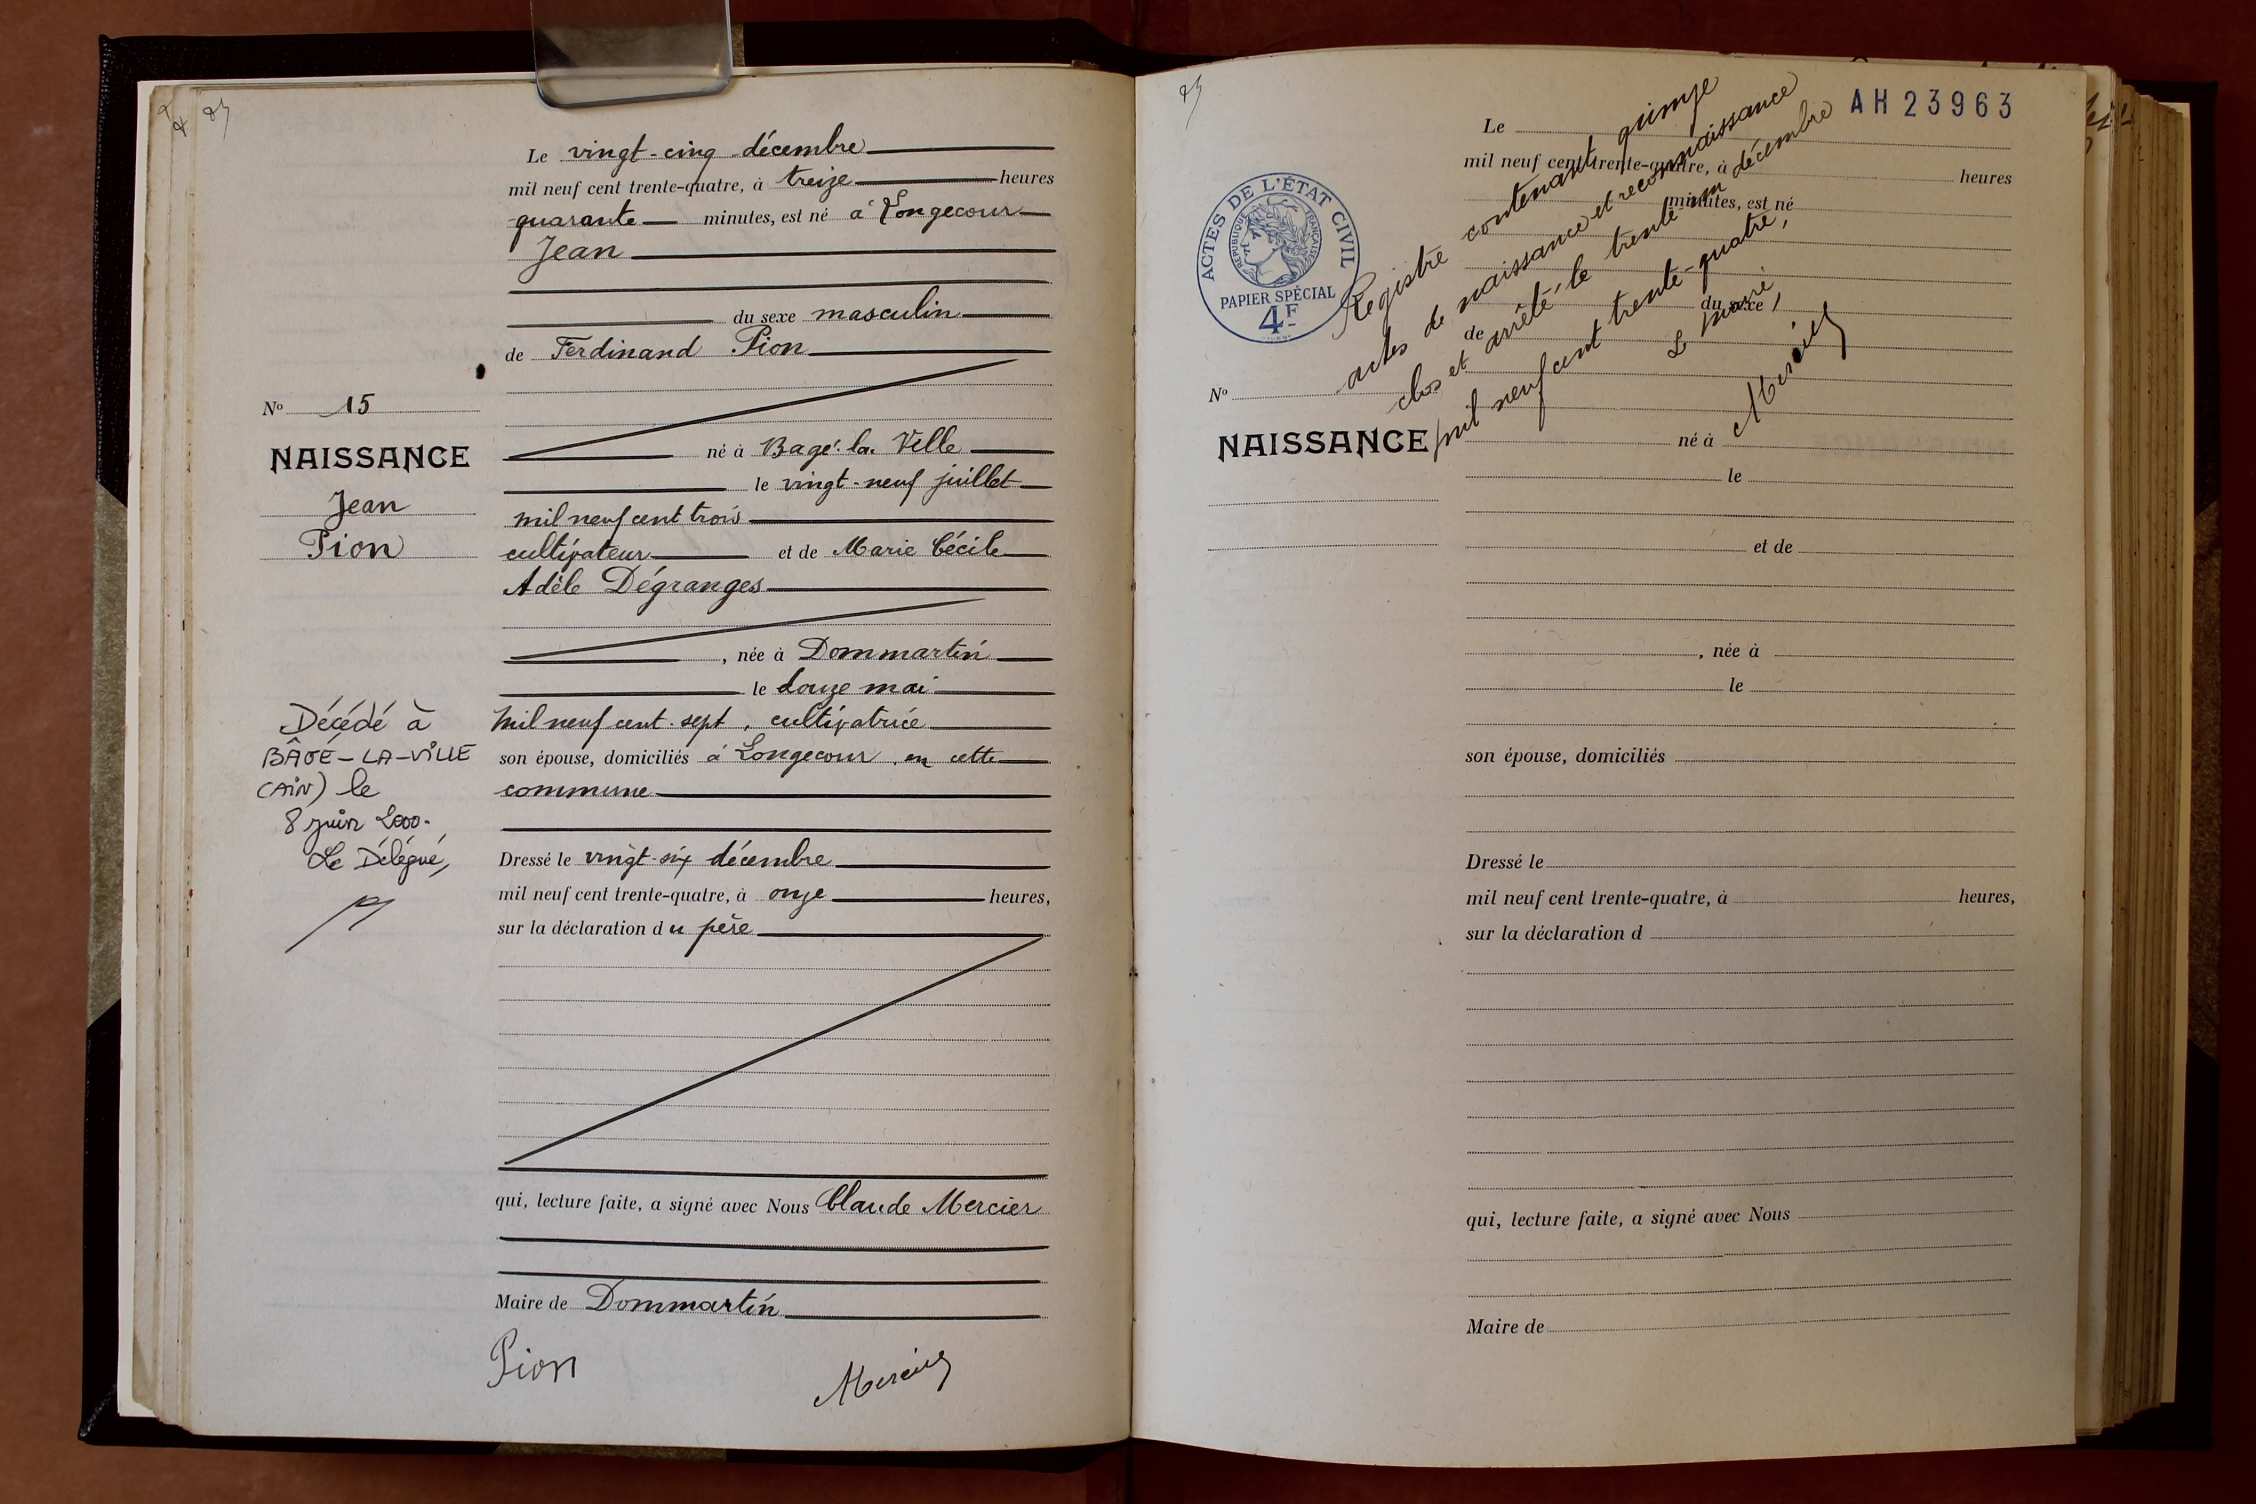 Le vingt-cinq décembre
mil neuf cent trente-quatre, à treize heures
quarante minutes, est né à Longecour
Jean
du sexe masculin
de Ferdinand Pion
né à Bagé-la-Ville
le vingt-neuf juillet
mil neuf cent trois
cultivateur et de Marie Cécile
Adèle Dégranges
, née à Dommartin
le douze mai
mil neuf cent sept, cultivatrice
son épouse, domiciliés à Longecour, en cette
commune
Dressé le vingt-six décembre
mil neuf cent trente-quatre, à onze heures,
sur la déclaration du père
qui, lecture faite, a signé avec Nous Claude Mercier
Maire de Dommartin
Pion
Mercier
No 15
NAISSANCE
Jean
Pion
Décédé à
BÂGÉ-LA-VILLE
(AIN) le
8 juin 2000.
Le Délégué,
AH 23963
ACTES DE L'ÉTAT CIVIL
RÉPUBLIQUE FRANÇAISE
PAPIER SPÉCIAL
4F
Registre contenant quinze
actes de naissance et reconnaissance
clos et arrêté le trente un décembre
mil neuf cent trente-quatre,
Le Maire,
Mercier
No
NAISSANCE
Le
mil neuf cent trente-quatre, à heures
minutes, est né
du sexe
de
né à
le
et de
, née à
le
son épouse, domiciliés
Dressé le
mil neuf cent trente-quatre, à heures,
sur la déclaration d
qui, lecture faite, a signé avec Nous
Maire de